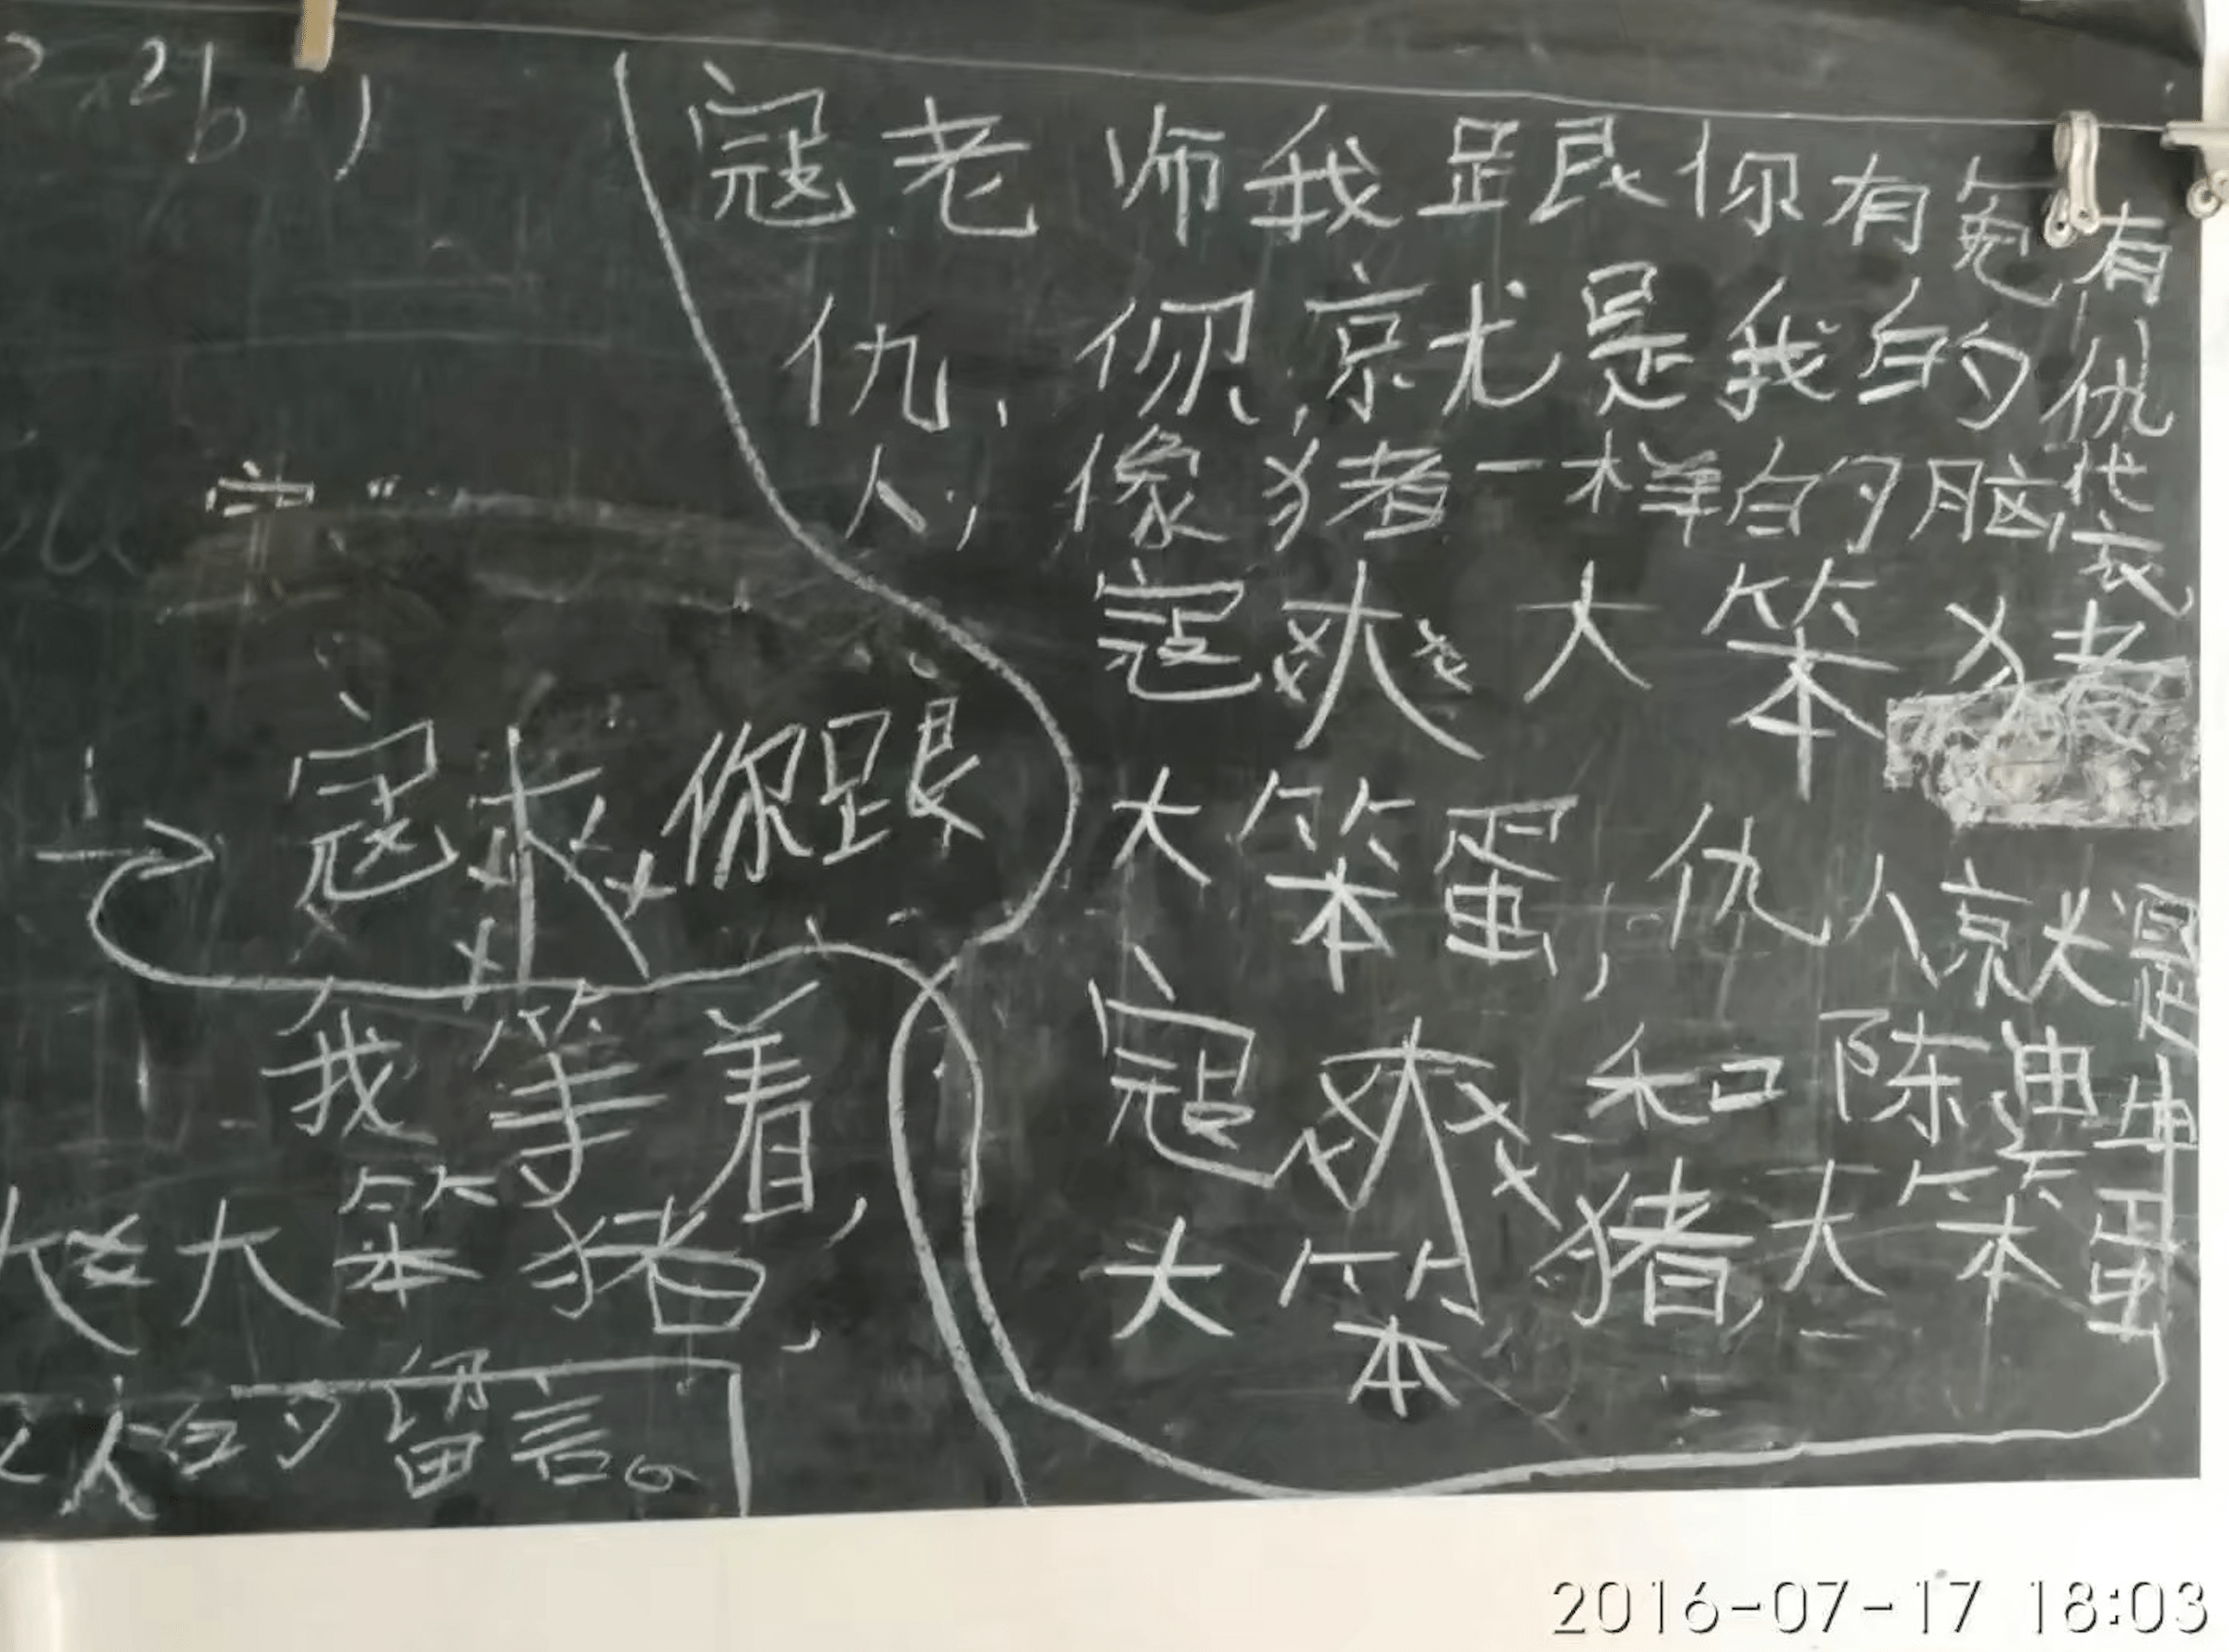 寇老师我跟你有冤有
仇,你就是我的仇
人,像猪一样的脑袋
寇爽大笨猪
大笨蛋,仇人就是
寇爽和陈迪坤
大笨猪,大笨蛋
寇爽你跟
我等着,
大笨猪,
人的留言。
2016-07-17 18:03